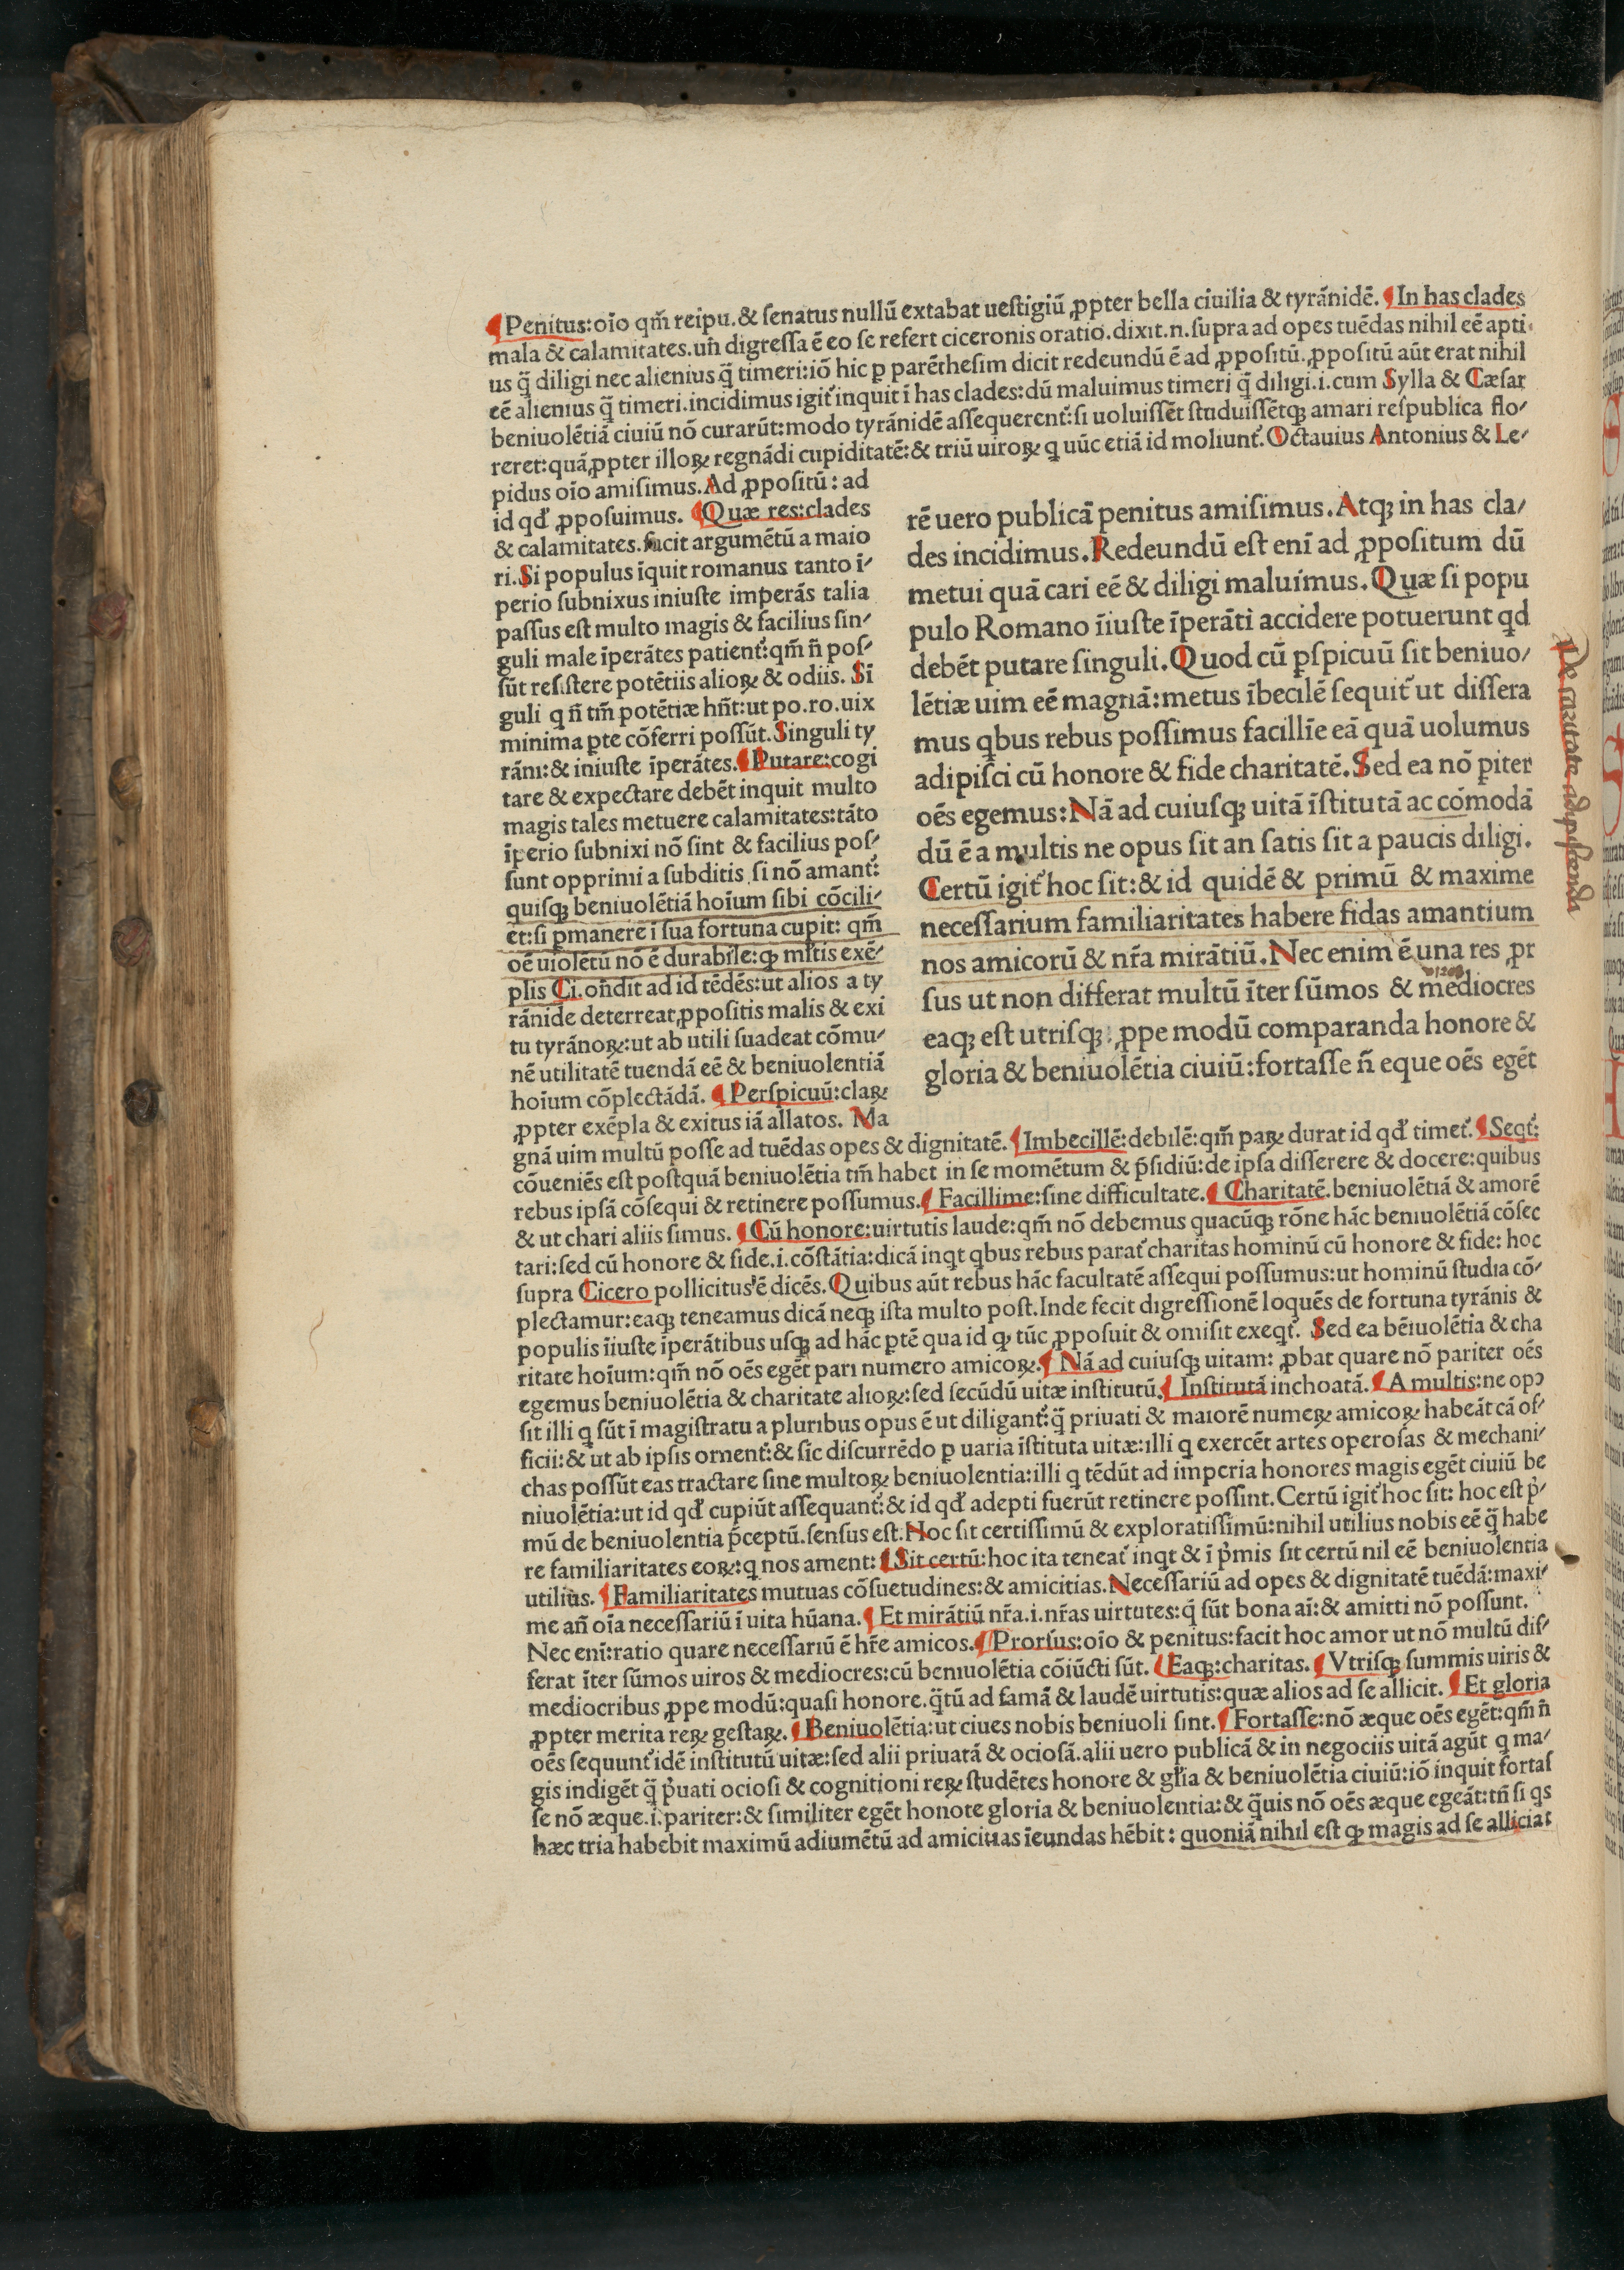 ¶Penitus:oīo qm̄ reipu.& ſenatus nullū extabat ueſtigiū ꝓpter bella ciuilia & tyrānidē. ¶In has clades
mala & calamitates.uñ digreſſa ē eo ſe refert ciceronis oratio.dixit.n.ſupra ad opes tuēdas nihil eē apti
us q̄ diligi nec alienius q̄ timeri:iō hic p parētheſim dicit redeundū ē ad ꝓpoſitū.ꝓpoſitū aūt erat nihil
eē alienius q̄ timeri.incidimus igit̄ inquit ī has clades:dū maluimus timeri q̄ diligi.i.cum Sylla & Cæſar
beniuolētiā ciuiū nō curarūt:modo tyrānidē aſſequerent̄:ſi uoluiſſēt ſtuduiſſētqꝫ amari reſpublica flo/
reret:quā ꝓpter illoꝝ regnādi cupiditatē:& triū uiroꝝ q uūc etiā id moliunt̄.Octauius Antonius & Le/
pidus oīo amiſimus.Ad ꝓpoſitū: ad
id qd̄ ꝓpoſuimus. ¶Quæ res:clades
& calamitates.facit argumētū a maio
ri.Si populus īquit romanus tanto ī/
perio ſubnixus iniuſte imperās talia
paſſus eſt multo magis & facilius ſin/
guli male īperātes patient̄:qm̄ ñ poſ/
ſūt reſiſtere potētiis alioꝝ & odiis. Sī
guli q ñ tm̄ potētiæ hñt:ut po.ro.uix
minima ꝑte cōferri poſſūt.Singuli ty
rāni:& iniuſte īperātes.¶Putare:cogi
tare & expectare debēt inquit multo
magis tales metuere calamitates:tāto
īperio ſubnixi nō ſint & facilius poſ/
ſunt opprimi a ſubditis ſi nō amant̄:
quiſqꝫ beniuolētiā hoīum ſibi cōcili/
et:ſi ꝑmanere ī ſua fortuna cupit: qm̄
oē uiolētū nō ē durabile:qꝫ ml̄tis exē/
plis Ci.oñdit ad id tēdēs:ut alios a ty
rānide deterreat ꝓpoſitis malis & exi
tu tyrānoꝝ:ut ab utili ſuadeat cōmu/
nē utilitatē tuendā eē & beniuolentiā
hoīum cōplectādā. ¶Perſpicuū:claꝝ
ꝓpter exēpla & exitus iā allatos. Ma
rē uero publicā penitus amiſimus.Atqꝫ in has cla/
des incidimus.Redeundū eſt enī ad ꝓpoſitum dū
metui quā cari eē & diligi maluimus.Quæ ſi popu
pulo Romano īiuſte īperāti accidere potuerunt qd
debēt putare ſinguli.Quod cū ꝑſpicuū ſit beniuo/
lētiæ uim eē magnā:metus ībecilē ſequit̄ ut diſſera
mus qbus rebus poſſimus facillīe eā quā uolumus
adipiſci cū honore & fide charitatē.Sed ea nō ꝑiter
oēs egemus:Nā ad cuiuſqꝫ uitā īſtitutā ac cōmodā
dū ē a multis ne opus ſit an ſatis ſit a paucis diligi.
Certū igit̄ hoc ſit:& id quidē & primū & maxime
neceſſarium familiaritates habere fidas amantium
nos amicorū & nr̄a mirātiū.Nec enim ē una res ꝓr
ſus ut non differat multū īter ſūmos & mediocres
eaqꝫ eſt utriſqꝫ: ꝓpe modū comparanda honore &
gloria & beniuolētia ciuiū:fortaſſe ñ eque oēs egēt
De caritate adipiſcenda
gnā uim multū poſſe ad tuēdas opes & dignitatē. ¶Imbecillē:debilē:qm̄ paꝝ durat id qd̄ timet̄. ¶Seqt̄:
cōueniēs eſt poſtquā beniuolētia tm̄ habet in ſe momētum & p̄ſidiū:de ipſa diſſerere & docere:quibus
rebus ipſā cōſequi & retinere poſſumus.¶Facillime:ſine difficultate.¶Charitatē.beniuolētiā & amorē
& ut chari aliis ſimus. ¶Cū honore:uirtutis laude:qm̄ nō debemus quacūqꝫ rōne hāc beniuolētiā cōſec
tari:ſed cū honore & fide.i.cōſtātia:dicā inqt qbus rebus parat̄ charitas hominū cū honore & fide: hoc
ſupra Cicero pollicitus ē dicēs.Quibus aūt rebus hāc facultatē aſſequi poſſumus:ut hominū ſtudia cō/
plectamur:eaqꝫ teneamus dicā neqꝫ iſta multo poſt.Inde fecit digreſſionē loquēs de fortuna tyrānis &
populis īiuſte īperātibus uſqꝫ ad hāc ꝑtē qua id qꝫ tūc ꝓpoſuit & omiſit exeqt̄. Sed ea bēiuolētia & cha
ritate hoīum:qm̄ nō oēs egēt pari numero amicoꝝ.¶Nā ad cuiuſqꝫ uitam: ꝓbat quare nō pariter oēs
egemus beniuolētia & charitate alioꝝ:ſed ſecūdū uitæ inſtitutū.¶Inſtitutā inchoatā.¶A multis:ne opꝰ
ſit illi q ſūt ī magiſtratu a pluribus opus ē ut diligant̄:q̄ priuati & maiorē numeꝝ amicoꝝ habeāt cā of/
ficii:& ut ab ipſis ornent̄:& ſic diſcurrēdo p uaria īſtituta uitæ:illi q exercēt artes operoſas & mechani/
chas poſſūt eas tractare ſine multoꝝ beniuolentia:illi q tēdūt ad imperia honores magis egēt ciuiū be
niuolētia:ut id qd̄ cupiūt aſſequant̄:& id qd̄ adepti fuerūt retinere poſſint.Certū igit̄ hoc ſit: hoc eſt p̄/
mū de beniuolentia p̄ceptū.ſenſus eſt.Hoc ſit certiſſimū & exploratiſſimū:nihil utilius nobis eē q̄ habe
re familiaritates eoꝝ:q nos ament:¶Sit certū:hoc ita teneat̄ inqt & ī p̄mis ſit certū nil eē beniuolentia
utilius. ¶Familiaritates mutuas cōſuetudines:& amicitias.Neceſſariū ad opes & dignitatē tuēdā:maxi/
me añ oīa neceſſariū ī uita hūana.¶Et mirātiū nr̄a.i.nr̄as uirtutes:q̄ ſūt bona aī:& amitti nō poſſunt.
Nec enī:ratio quare neceſſariū ē hr̄e amicos.¶Prorſus:oīo & penitus:facit hoc amor ut nō multū dif/
ferat īter ſūmos uiros & mediocres:cū beniuolētia cōiūcti ſūt. ¶Eaqꝫ:charitas.¶Vtriſqꝫ ſummis uiris &
mediocribus ꝓpe modū:quaſi honore.q̄tū ad famā & laudē uirtutis:quæ alios ad ſe allicit. ¶Et gloria
ꝓpter merita reꝝ geſtaꝝ.¶Beniuolētia:ut ciues nobis beniuoli ſint.¶Fortaſſe:nō æque oēs egēt:qm̄ ñ
oēs ſequunt̄ idē inſtitutū uitæ:ſed alii priuatā & ocioſā.alii uero publicā & in negociis uitā agūt q ma/
gis indigēt q̄ p̄uati ocioſi & cognitioni reꝝ ſtudētes honore & gl̄ia & beniuolētia ciuiū:iō inquit fortaſ
ſe nō æque.i.pariter:& ſimiliter egēt honote gloria & beniuolentia:& q̄uis nō oēs æque egeāt:tñ ſi qs
hæc tria habebit maximū adiumētū ad amicitias īeundas hēbit: quoniā nihil eſt qꝫ magis ad ſe alliciat